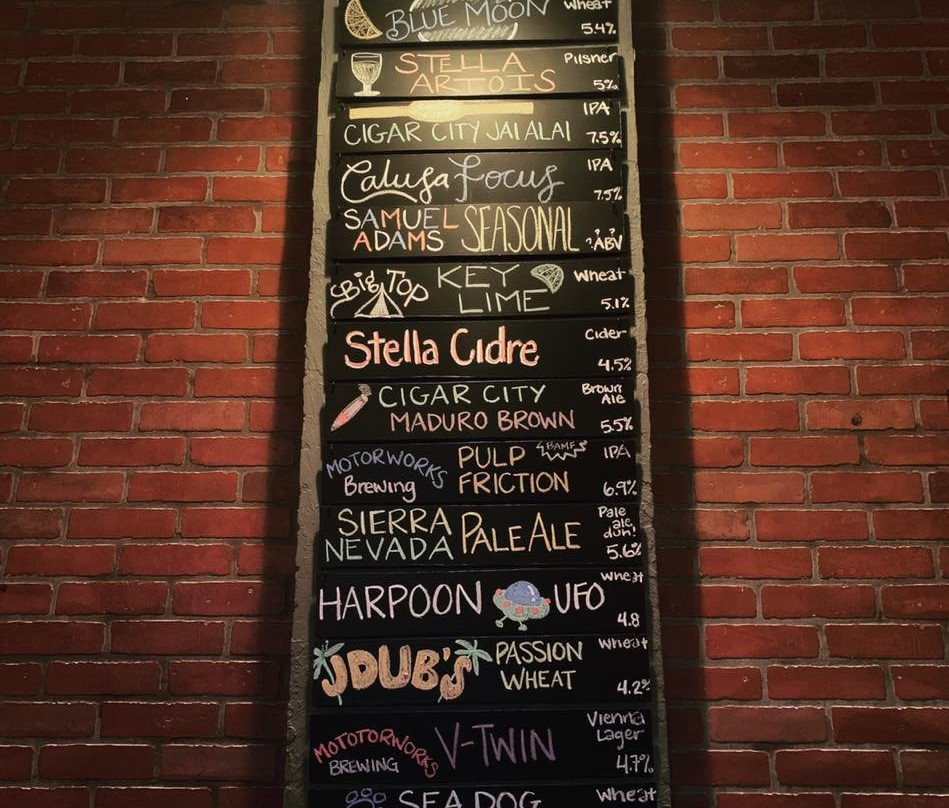 BLUE MOON Wheat
5.4%
STELLA Pilsner
ARTOIS 5%
IPA
CIGAR CITY JAI ALAI 7.5%
Calusa Focus IPA
7.5%
SAMUEL SEASONAL
ADAMS ?ABV
Big Top KEY Wheat
LIME 5.1%
Stella Cidre Cider
4.5%
CIGAR CITY Brown
Ale
MADURO BROWN 5.5%
MOTORWORKS PULP BAMF IPA
Brewing FRICTION 6.9%
SIERRA PALE ALE Pale
ale
duh!
NEVADA 5.6%
HARPOON UFO Wheat
4.8
JDUB'S PASSION Wheat
WHEAT 4.2%
MOTOTORWORKS V-TWIN Vienna
Lager
BREWING 4.7%
SEA DOG Wheat